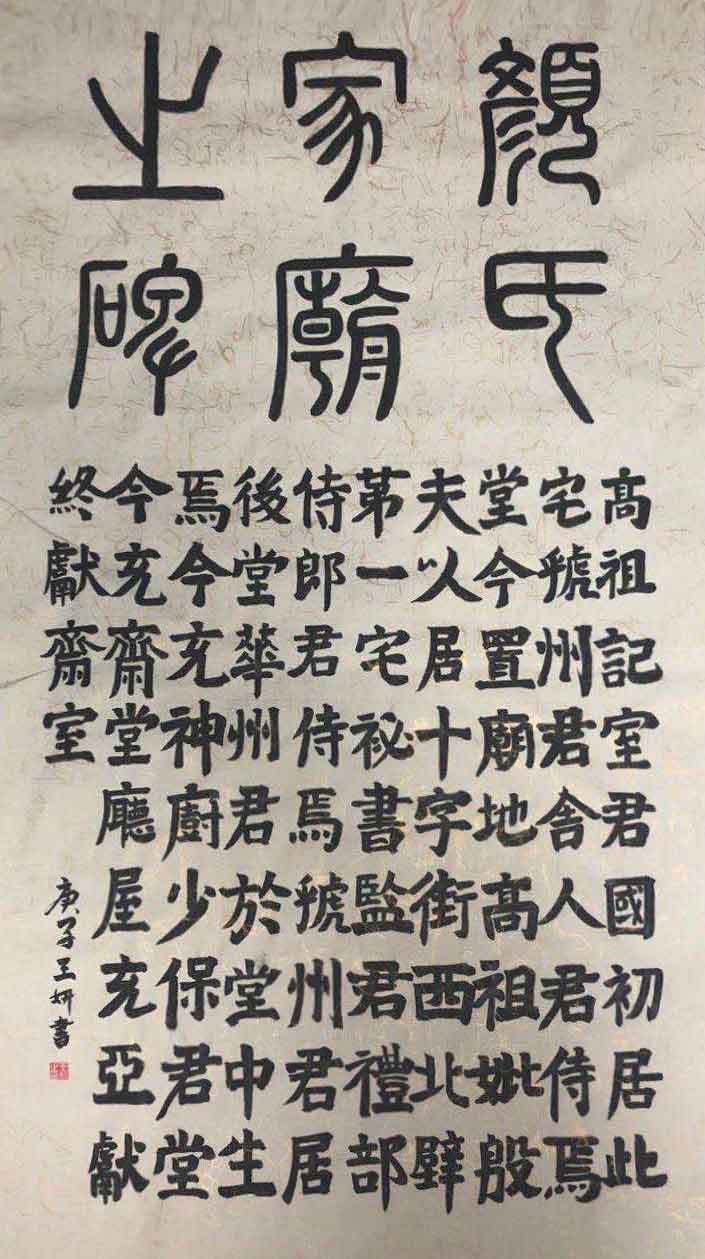 顏氏
家廟
之碑
高祖記室君國初居此
宅虢州君舍人君侍焉
堂今置廟地高祖妣殷
夫以居十字街西北壁
苐一宅祕書監君禮部
侍郎君侍焉虢州君居
後堂華州君於堂中生
焉今充神廚少保君堂
今充齋堂廳屋充亞獻
終獻齋室
庚子王妍書